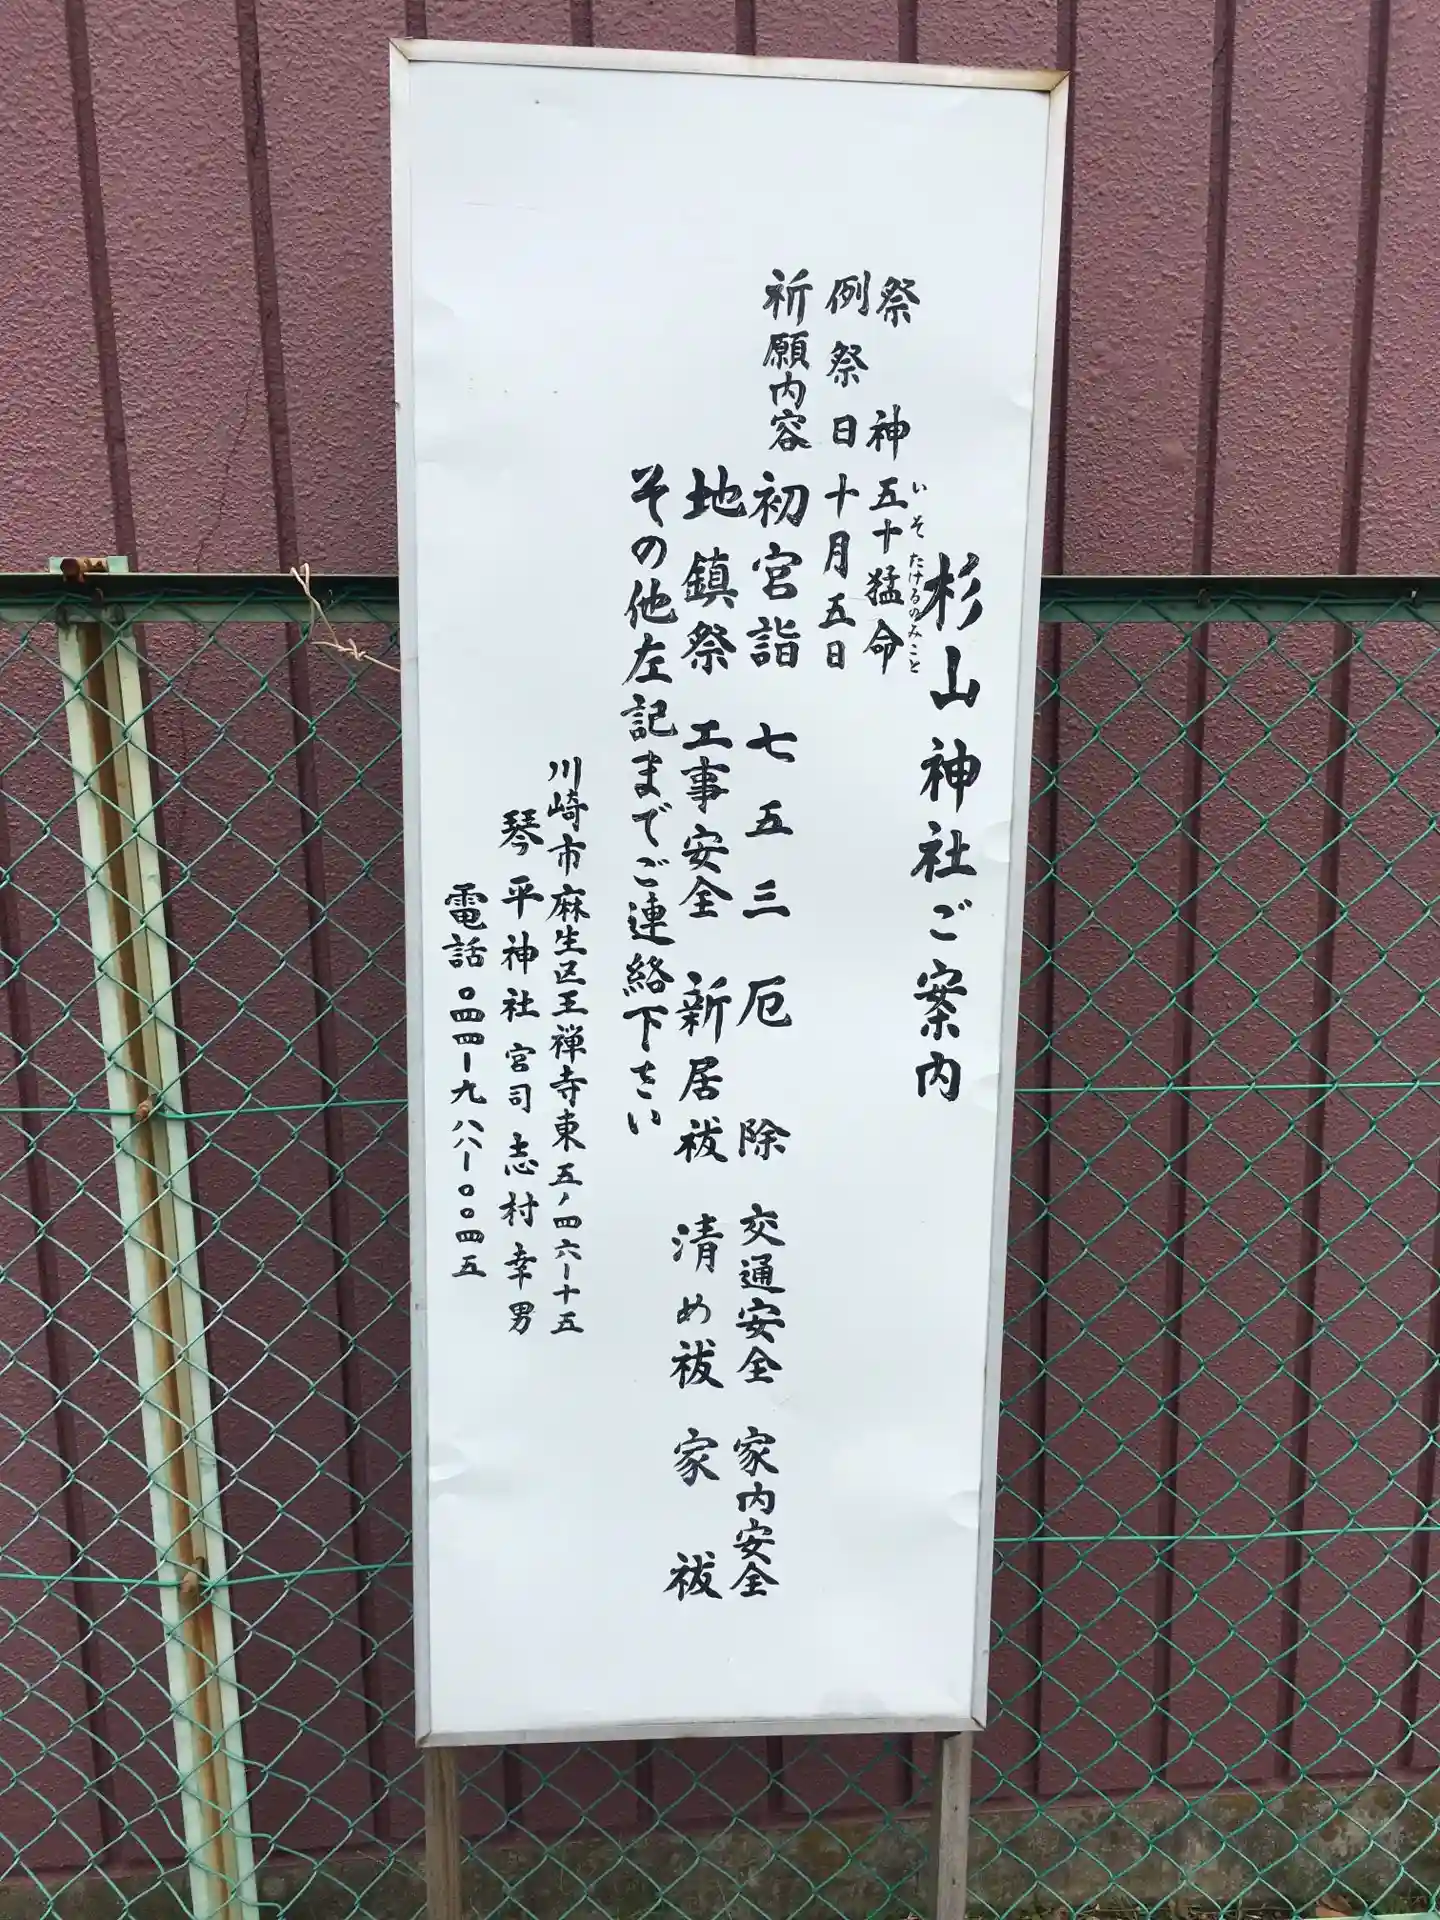 杉山神社ご案内
祭神 五十猛命
いそたけるのみこと
例祭日 十月五日
祈願内容 初宮詣 七五三 厄除 交通安全 家内安全
地鎮祭 工事安全 新居祓 清め祓 家祓
その他左記までご連絡下さい
川崎市麻生区王禅寺東五ノ四六ー十五
琴平神社 宮司 志村幸男
電話〇四四ー九八八ー〇〇四五